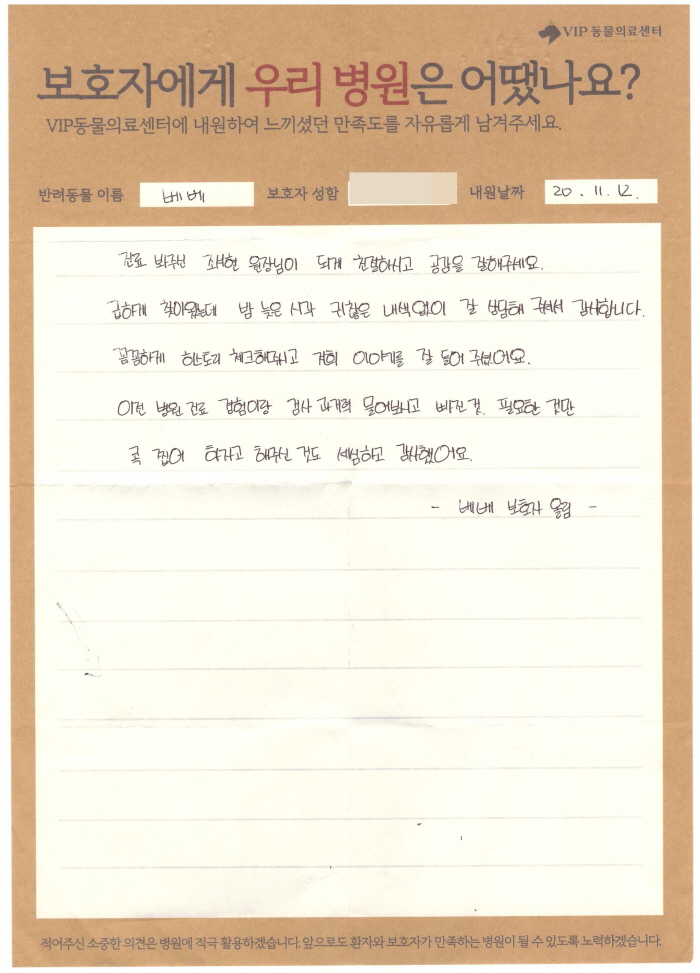 VIP 동물의료센터
보호자에게 우리 병원은 어땠나요?
VIP동물의료센터에 내원하여 느끼셨던 만족도를 자유롭게 남겨주세요.
반려동물 이름 베베 보호자 성함 내원날짜 20. 11. 12.
진료 봐주신 조세현 원장님이 되게 친절하시고 공감을 잘해주세요.
급하게 찾아왔는데 밤 늦은 시각 귀찮은 내색없이 잘 상담해 주셔서 감사합니다.
꼼꼼하게 히스토리 체크해주시고 저희 이야기를 잘 들어 주셨어요.
이전 병원 진료 경험이랑 검사 과거력 물어보시고 빠진 것, 필요한 것만
콕 찝어 하자고 해주신 것도 세심하고 감사했어요.
- 베베 보호자 올림 -
적어주신 소중한 의견은 병원에 적극 활용하겠습니다. 앞으로도 환자와 보호자가 만족하는 병원이 될 수 있도록 노력하겠습니다.